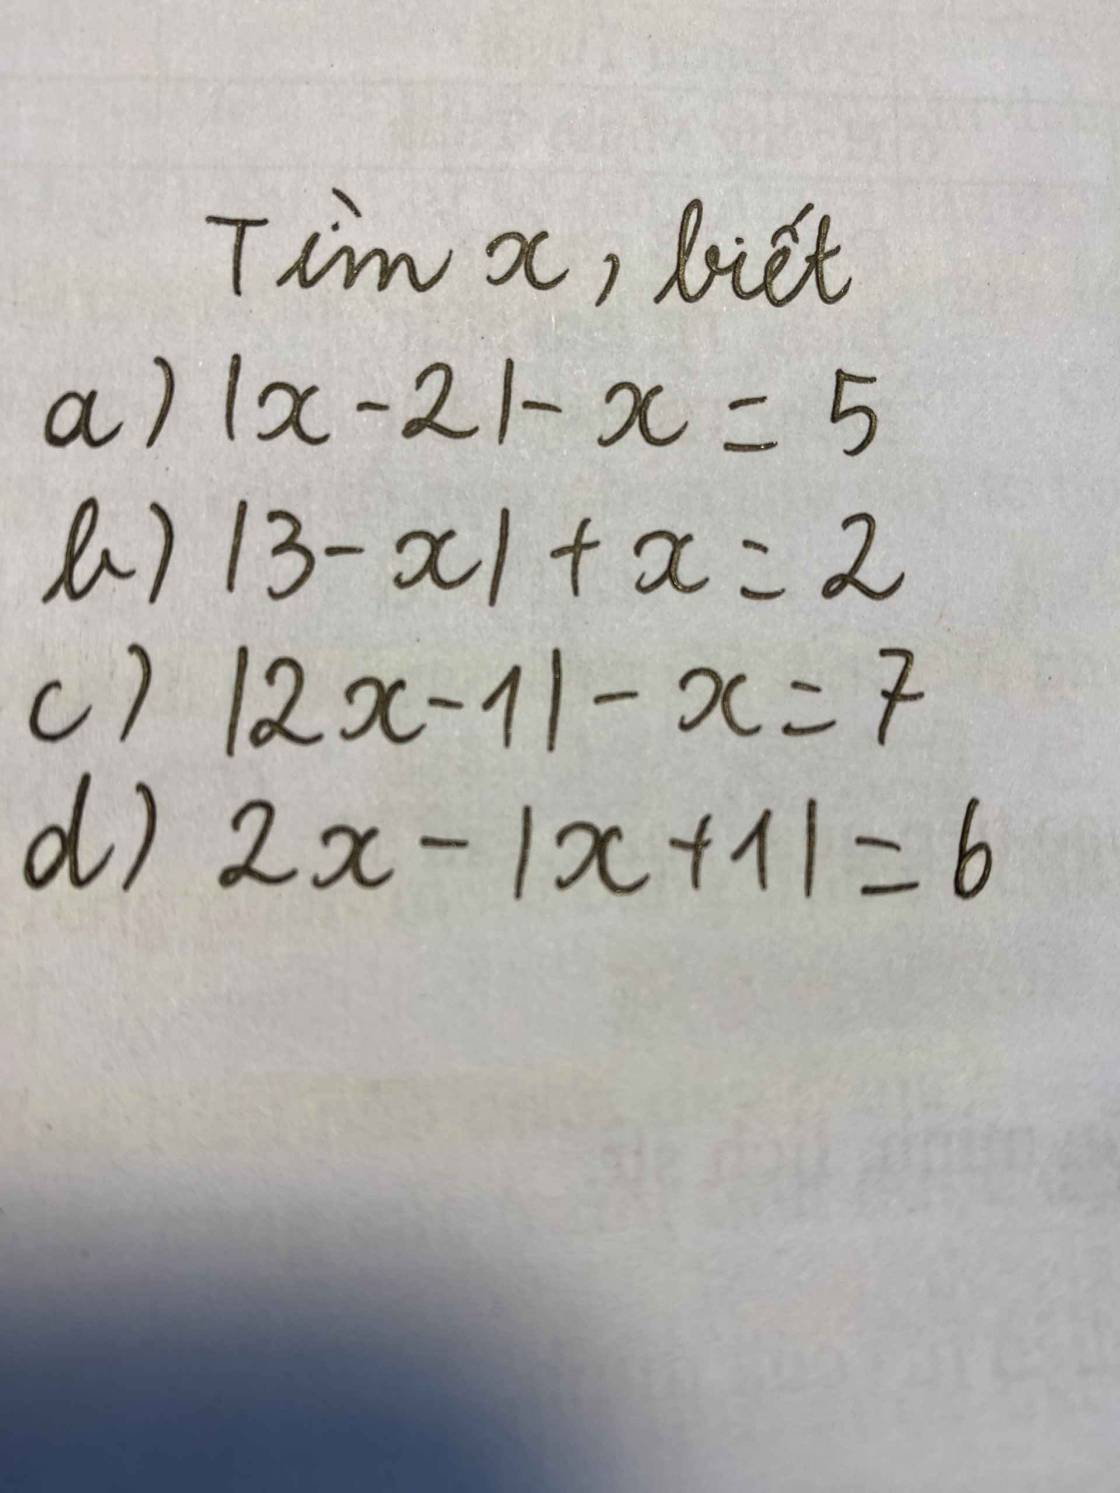 Tìm x, biết
a) |x - 2| - x = 5
b) |3 - x| + x = 2
c) |2x - 1| - x = 7
d) 2x - |x + 1| = 6